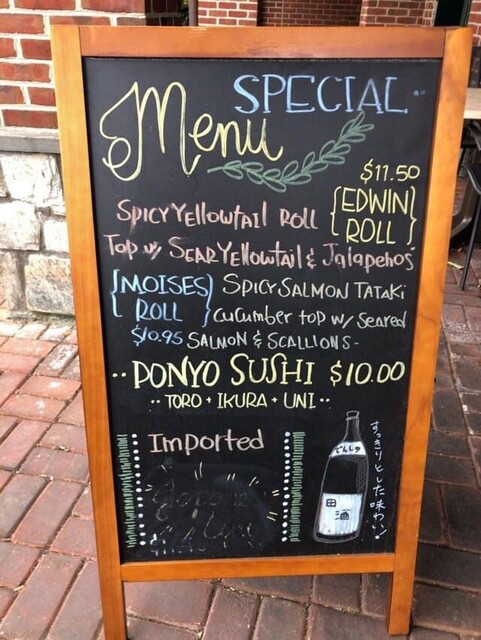 SPECIAL
Menu
$11.50
{EDWIN ROLL}
SPICY Yellowtail Roll
Top w/ SEAR Yellowtail & Jalapeños
{MOISES ROLL}
$10.95
SPICY SALMON TATAKI
Cucumber top w/ Seared
SALMON & SCALLIONS-
·· PONYO SUSHI $10.00
·· TORO + IKURA + UNI ··
Imported
でんしゅ
田酒
すっきりとした味わい